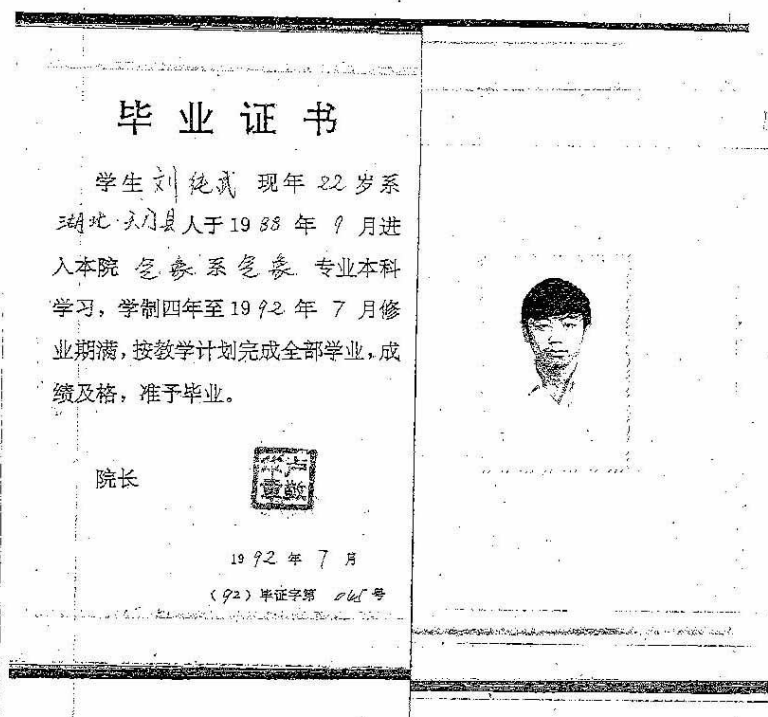 毕业证书
学生刘纯武 现年22岁系
湖北·天门县人于1988年9月进
入本院气象系气象专业本科
学习，学制四年至1992年7月修
业期满，按教学计划完成全部学业，成
绩及格，准予毕业。
院长
1992年7月
（92）毕证字第 号